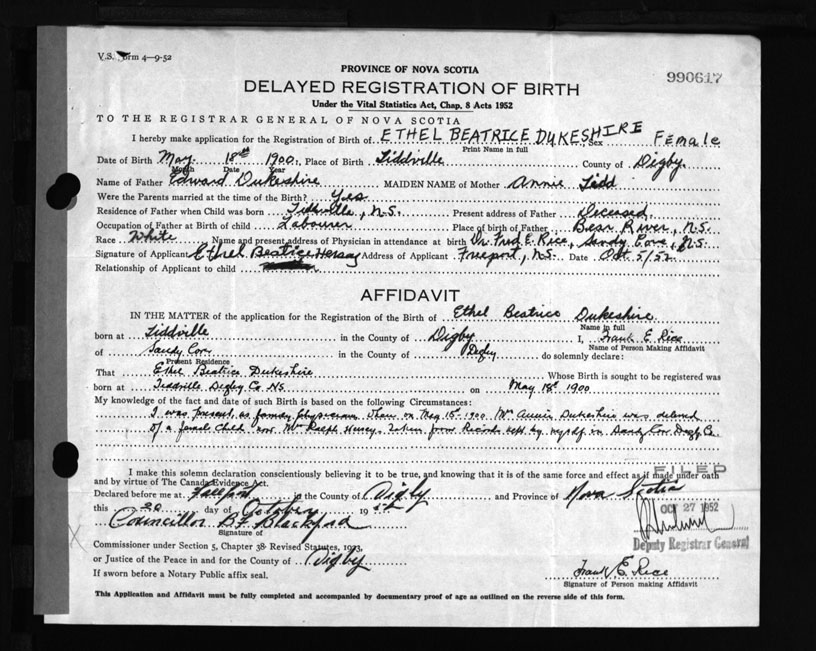 V.S. Form 4—9-52
990617
PROVINCE OF NOVA SCOTIA
DELAYED REGISTRATION OF BIRTH
Under the Vital Statistics Act, Chap. 8 Acts 1952
TO THE REGISTRAR GENERAL OF NOVA SCOTIA
I hereby make application for the Registration of Birth of ETHEL BEATRICE DUKESHIRE Sex Female
Print Name in full
Date of Birth May 18th 1900, Place of Birth Tiddville County of Digby
Month Date Year
Name of Father Edward Dukeshire MAIDEN NAME of Mother Annie Tidd
Were the Parents married at the time of the Birth? Yes
Residence of Father when Child was born Tiddville, N.S. Present address of Father Deceased
Occupation of Father at Birth of child Labourer Place of birth of Father Bear River, N.S.
Race White Name and present address of Physician in attendance at birth Dr. Fred E. Rice, Sandy Cove, N.S.
Signature of Applicant Ethel Beatrice Hersey Address of Applicant Freeport, N.S. Date Oct. 5/52
Relationship of Applicant to child
AFFIDAVIT
IN THE MATTER of the application for the Registration of the Birth of Ethel Beatrice Dukeshire
Name in full
born at Tiddville in the County of Digby I, Frank E. Rice
Name of Person Making Affidavit
of Sandy Cove in the County of Digby do solemnly declare:
Present Residence
That Ethel Beatrice Dukeshire Whose Birth is sought to be registered was
born at Tiddville Digby Co NS on May 18th 1900
My knowledge of the fact and date of such Birth is based on the following Circumstances:
I was present as family physician when on May 18th 1900 Mrs Annie Dukeshire was delivered
of a female child now Mrs Ralph Hersey. Taken from Records kept by myself in Sandy Cove Digby Co.
I make this solemn declaration conscientiously believing it to be true, and knowing that it is of the same force and effect as if made under oath
and by virtue of The Canada Evidence Act.
FILED
Declared before me at Freeport in the County of Digby and Province of Nova Scotia
this 20 day of October 1952
OCT 27 1952
Councillor B.F. Blackford
Signature of
Deputy Registrar General
Commissioner under Section 5, Chapter 38 Revised Statutes, 1923,
or Justice of the Peace in and for the County of Digby
If sworn before a Notary Public affix seal.
Frank E. Rice
Signature of Person making Affidavit
This Application and Affidavit must be fully completed and accompanied by documentary proof of age as outlined on the reverse side of this form.